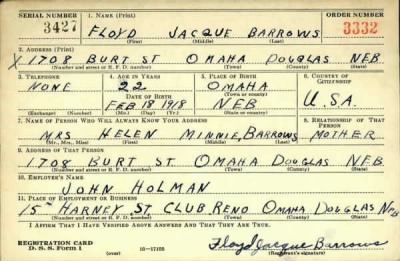 SERIAL NUMBER 1. NAME (Print) ORDER NUMBER
3427 FLOYD JACQUE BARROWS 3332
(First) (Middle) (Last)
2. ADDRESS (Print)
X 1708 BURT ST OMAHA DOUGLAS NEB
(Number and street or R. F. D. number) (Town) (County) (State)
3. TELEPHONE 4. AGE IN YEARS 5. PLACE OF BIRTH 6. COUNTRY OF CITIZENSHIP
NONE 22 OMAHA
DATE OF BIRTH (Town or county)
FEB 18 1918 NEB U.S.A.
(Exchange) (Number) (Mo.) (Day) (Yr.) (State or country)
7. NAME OF PERSON WHO WILL ALWAYS KNOW YOUR ADDRESS 8. RELATIONSHIP OF THAT PERSON
MRS HELEN MINNIE BARROWS MOTHER
(Mr., Mrs., Miss) (First) (Middle) (Last)
9. ADDRESS OF THAT PERSON
1708 BURT ST OMAHA DOUGLAS NEB
(Number and street or R. F. D. number) (Town) (County) (State)
10. EMPLOYER'S NAME
JOHN HOLMAN
11. PLACE OF EMPLOYMENT OR BUSINESS
15TH HARNEY ST CLUB RENO OMAHA DOUGLAS NEB
(Number and street or R. F. D. number) (Town) (County) (State)
I AFFIRM THAT I HAVE VERIFIED ABOVE ANSWERS AND THAT THEY ARE TRUE.
REGISTRATION CARD Floyd Jacque Barrows
D. S. S. Form 1 (over) 16-17105 (Registrant's signature)